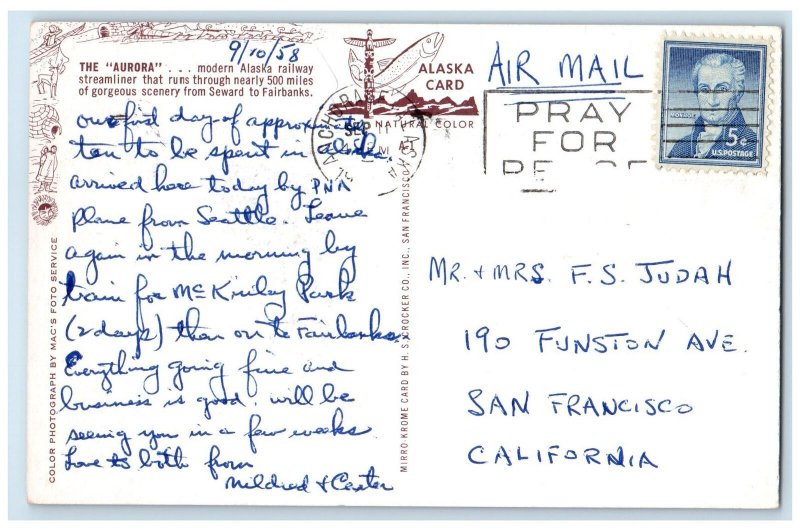 9/10/58
THE "AURORA" . . . modern Alaska railway
streamliner that runs through nearly 500 miles
of gorgeous scenery from Seward to Fairbanks.
ALASKA
CARD
NATURAL COLOR
AIR MAIL
PRAY
FOR
MONROE
5c
U.S. POSTAGE
our first day of approximately
ten to be spent in Alaska.
arrived here today by PNA
plane from Seattle. Leave
again in the morning by
train for McKinley Park
(2 days) then on to Fairbanks.
Everything going fine and
business is good. will be
seeing you in a few weeks
Love to both from
Mildred + Carter
COLOR PHOTOGRAPH BY MAC'S FOTO SERVICE
MIRRO-KROME CARD BY H. S. CROCKER CO., INC., SAN FRANCISCO
MR. + MRS. F.S. JUDAH
190 FUNSTON AVE.
SAN FRANCISCO
CALIFORNIA